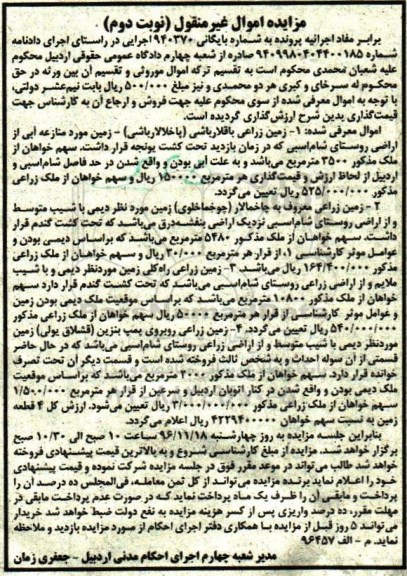 مزایده اموال غیر منقول (نوبت دوم)
برابر مفاد اجرائیه پرونده به شماره بایگانی ۹۴۰۳۷۰ اجرایی در راستای اجرای دادنامه
شماره ۹۴۰۹۹۸۰۴۰۴۴۰۰۱۸۵ صادره از شعبه چهارم دادگاه عمومی حقوقی اردبیل محکوم
علیه شعبان محمدی محکوم است به تقسیم ترکه اموال موروثی و تقسیم آن بین ورثه در حق
محکوم له سرخای و کبری هر دو محمدی و نیز مبلغ ۵۰۰/۰۰۰ ریال بابت نیم‌عشر دولتی،
با توجه به اموال معرفی شده از سوی محکوم علیه جهت فروش و ارجاع آن به کارشناس جهت
قیمت‌گذاری بدین شرح ارزش‌گذاری گردیده است.
اموال معرفی شده: ۱- زمین زراعی باقلارباشی (یاخلالارباشی) - زمین مورد منازعه آبی از
اراضی روستای شام‌اسبی که در زمان بازدید تحت کشت یونجه قرار داشت. سهم خواهان از
ملک مذکور ۳۵۰۰ مترمربع می‌باشد و به علت آبی بودن و واقع شدن در حد فاصل شام‌اسبی و
اردبیل از لحاظ ارزش و قیمت‌گذاری هر مترمربع ۱۵۰۰۰۰ ریال و سهم خواهان از ملک زراعی
مذکور ۵۲۵/۰۰۰/۰۰۰ ریال تعیین می‌گردد.
۲ - زمین زراعی معروف به چاخمالار (چوخماخلوی) زمین مورد نظر دیمی با شیب متوسط
و از اراضی روستای شام‌اسبی نزدیک اراضی بنفشه‌درق می‌باشد که تحت کشت گندم قرار
داشت. سهم خواهان از ملک مذکور ۵۴۸۰ مترمربع می‌باشد که براساس دیمی بودن و
عوامل موثر کارشناسی ۱، از قرار هر مترمربع ۳۰/۰۰۰ ریال و سهم خواهان از ملک زراعی
مذکور ۱۶۴/۴۰۰/۰۰۰ ریال می‌باشد. ۳- زمین زراعی راه‌کلی زمین موردنظر دیمی و با شیب
ملایم و از اراضی زراعی روستای شام‌اسبی می‌باشد که تحت کشت گندم قرار دارد سهم
خواهان از ملک مذکور ۱۰۸۰۰ مترمربع می‌باشد که براساس موقعیت ملک دیمی بودن زمین
و عوامل موثر کارشناسی از قرار هر مترمربع ۵۰۰۰۰ ریال سهم خواهان از ملک زراعی مذکور
۵۴۰/۰۰۰/۰۰۰ ریال تعیین می‌گردد. ۴- زمین زراعی روبروی پمپ بنزین (قشلاق یولی) زمین
موردنظر دیمی با شیب متوسط و از اراضی زراعی روستای شام‌اسبی می‌باشد که در حال حاضر
قسمتی از آن سوله احداث و به شخص ثالث فروخته شده است و قسمت دیگر آن تحت تصرف
خوانده قرار دارد. سهم خواهان از ملک مذکور ۲۰۰۰ مترمربع می‌باشد که براساس موقعیت
ملک دیمی بودن و واقع شدن در کنار اتوبان اردبیل و سرعین از قرار هر مترمربع ۱/۵۰۰/۰۰۰
سهم خواهان از ملک زراعی مذکور ۳/۰۰۰/۰۰۰/۰۰۰ ریال تعیین می‌شود. ارزش کل ۴ قطعه
زمین به نسبت سهم خواهان ۴۲۲۹۴۰۰۰۰۰ ریال اعلام می‌گردد.
بنابراین جلسه مزایده به روز چهارشنبه ۹۶/۱۱/۱۸ ساعت ۱۰ صبح الی ۱۰/۳۰ صبح
برگزار خواهد شد. مزایده از مبلغ کارشناسی شروع و به بالاترین قیمت پیشنهادی فروخته
خواهد شد طالب می‌تواند در موعد مقرر فوق در جلسه مزایده شرکت نموده و قیمت پیشنهادی
خود را اعلام نماید برنده مزایده می‌تواند از کل ثمن معامله، فی‌المجلس ده درصد آن را
پرداخت و مابقی آن را ظرف یک ماه پرداخت نماید که در صورت عدم پرداخت مابقی در
مهلت مقرر، ده درصد واریزی پس از کسر هزینه مزایده به نفع دولت ضبط خواهد شد خریدار
می‌تواند ۵ روز قبل از مزایده با همکاری دفتر اجرای احکام از مورد مزایده بازدید و ملاحظه
نماید. م - الف ۹۶۴۵۷
مدیر شعبه چهارم اجرای احکام مدنی اردبیل - جعفری زمان